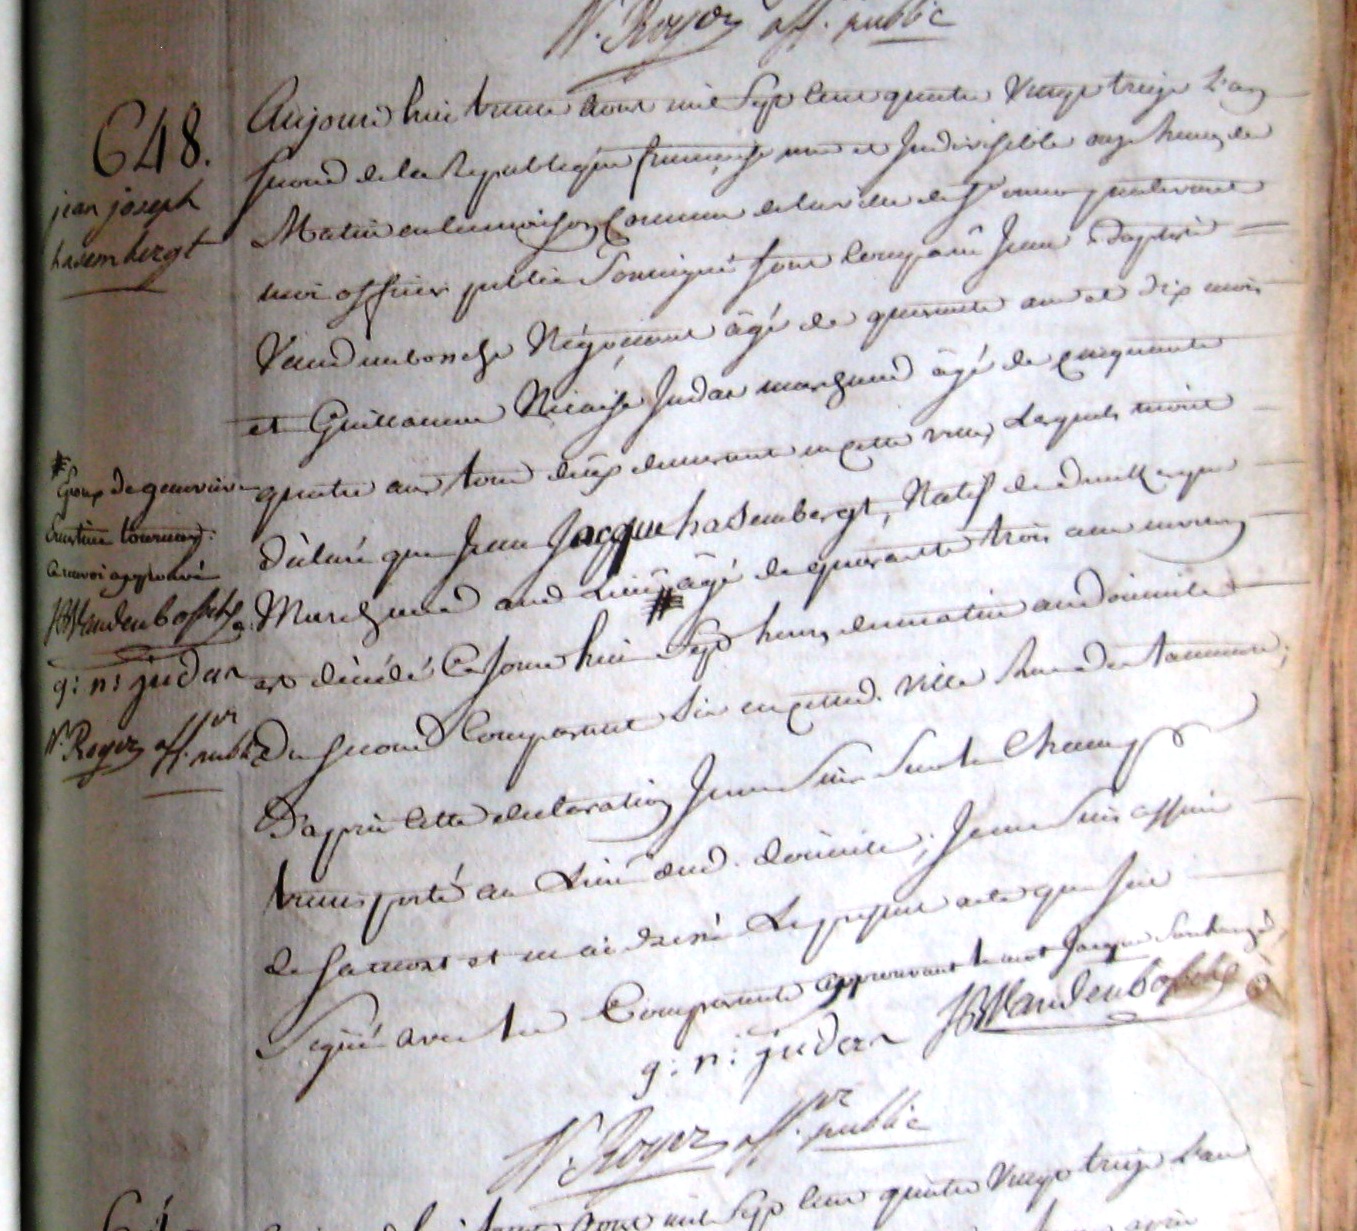 N. Royer off. public
648.
jean joseph
hasembergt
Aujourd'hui trente aout mil sept cent quatre vingt treize L'an
second de la Republique francaise une et Indivisible onze heures de
Matin en la maison Commune de la ville de St omer pardevant
moi officier public Soussigné sont comparu Jean Baptiste
Vandenbossche Négociant âgé de quarante ans et dix mois
et Guillaume Nicaise Judas marchand âgé de cinquante
quatre ans tous deux demeurant en cette ville, Lesquels m'ont
déclaré que Jean Jacque hasembergt, Natif de dunkerque
Marchand aud. Lieu # âgé de quarante trois ans environ
est décédé Ce jourd'hui Sept heures du matin au domicile
du second Comparant Sis en cetted. ville
D'après cette declaration Je me Suis Sur le Champ
transporté au Lieu dud. domicile, Je me Suis assuré
de sa mort et en ai dressé Le present acte que J'ai
Signé avec les Comparants approuvant le mot Jacque Surchargé
g: n: judas JB Vandenbossche
N. Royer off.er public
# Epoux de genevieve
Ernestine tournay.
Ce renvoi approuvé
JB Vandenbossche
g: n: judas
N. Royer off.er public
mil Sept cent quatre Vingt treize L'an